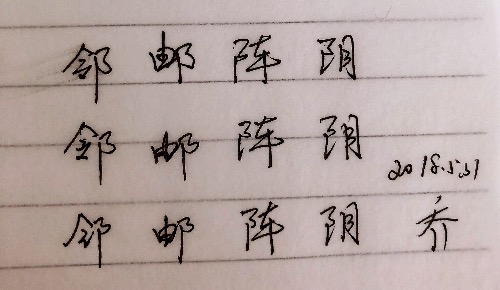 邮 阵 阴
邮 阵 阴
2018.5.31
邮 阵 阴 乔